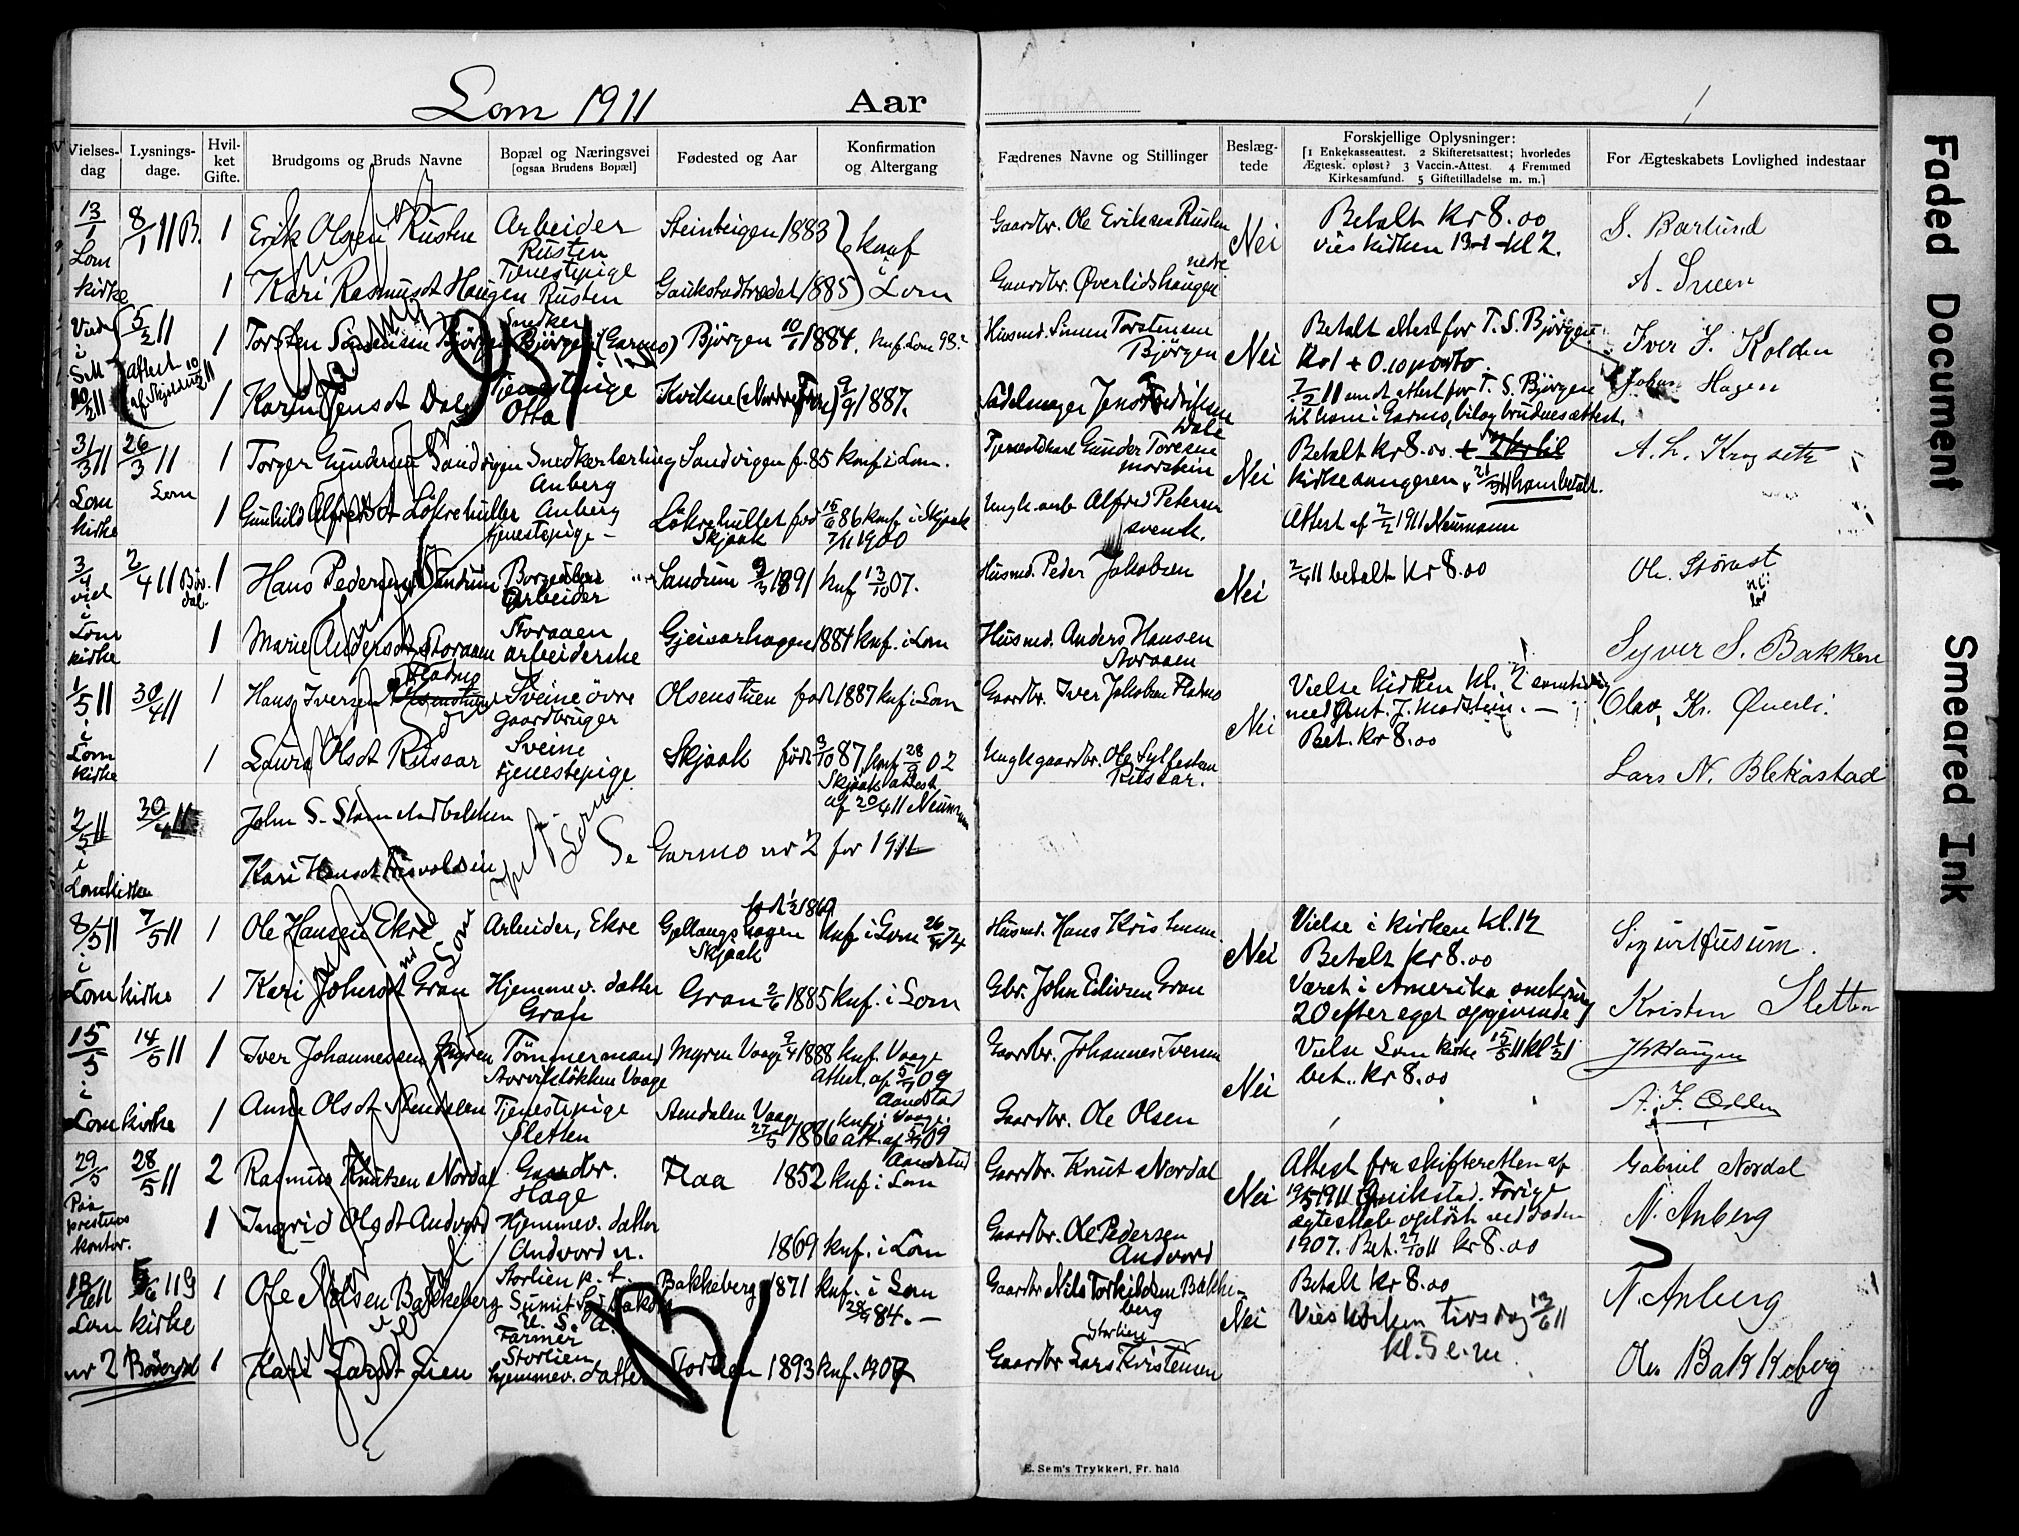 Lom 1911 Aar
Vielses-dag
Lysnings-dage.
Hvil-ket Gifte.
Brudgoms og Bruds Navne
Bopæl og Næringsvei
[ogsaa Brudens Bopæl]
Fødested og Aar
Konfirmation og Altergang
Fædrenes Navne og Stillinger
Beslæg-tede
Forskjellige Oplysninger:
[1 Enkekasseattest. 2 Skifteretsattest; hvorledes
Ægtesk. opløst? 3 Vaccin.-Attest. 4 Fremmed
Kirkesamfund. 5 Giftetilladelse m. m.]
For Ægteskabets Lovlighed indestaar
13/1 Lom kirke
8/1 11 B.
1 Erik Olsen Rusten
Arbeider Rusten
Steinteigen 1883
knf i Lom
Gaardbr. Ole Eriksen Rusten
Nei
Betalt kr 8.00
vies kirken 13-1 kl 2.
S. Barlund
1 Kari Rasmusdt Haugen
Tjenestepige Rusten
Gaukstadtrædet 1885
Gaardbr. Øverlidshaugen nedre
A. Sveen
5/2 11
1 Torsten Simensen Bjørgen
Snedker Bjørgen (Garmo)
Bjørgen 10/1 1884. knf. Lom 98.
Husmd. Simen Torstensen Bjørgen
Nei
Betalt attest for T. S. Bjørgen
kr 1 + 0.10 porto.
Iver J. Kolden
1 Karin Jensdt Dale
Tjenestepige Otta
Kvikne (Nordre Fron) 9/9 1887.
Sadelmager Jens Fredriksen Dale
7/2 11 sendt attest for T. S. Bjørgen
til ham i Garmo, bilag brudens attest.
Johan Hagen
31/3 11 Lom kirke
26/3 11 Lom
1 Torger Gundersen Sandvigen
Snedkerlærling Anberg
Sandvigen f. 85 knf. i Lom.
Tjenestekarl Gunder Toresen Marstein
Nei
Betalt kr 8.00
A. L. Krogseth
1 Gunhild Alfredsdt Løkrehullet
Anberg tjenestepige
Løkrehullet Skjaak fød 15/6 86 knf i Skjaak
7/11 1900
Ungk. arb. Alfred Petersen svensk.
Attest af 2/2 1911 Neumann
3/4 viet i Lom kirke
2/4 11 Bøv.dal.
1 Hans Pedersen Sandum
Arbeider
Sandum 9/3 1891 knf 13/10 07.
Husmd. Peder Jakobsen
Nei
2/4 11 betalt kr 8.00
1 Marie Andersdt Storaaen
Storaaen arbeiderske
Gjeisarhagen 1884 knf. i Lom
Husmd. Anders Hansen Storaaen
Syver S. Bakken
1/5 11 i Lom kirke
30/4 11
1 Hans Iversen Flatmo
Sveine øvre Gaardbruger
Olsenstuen født 1887 knf i Lom
Gaardbr. Iver Jakobsen Flatmo
Nei
Vielse kirken kl. 2 samtidig
med Ant. J. Marstein.
Bet. kr 8.00
Olav Kr. Øverli.
1 Laura Olsdt Rusaar
Sveine tjenestepige
Skjaak født 3/10 87 knf 28/9 02
Skjaak attest af 20/4 11 Neumann
Ungk gaardbr. Ole Sylfestsen Rusaar.
Lars N. Blekastad
2/5 11 i Lom kirke
30/4 11
John S. Stamstadbakken
Se Garmo nr 2 for 1911
8/5 11 i Lom kirke
7/5 11
1 Ole Hansen Ekre
Arbeider, Ekre
Skjaak knf i Lom 26/4 74
Husmd. Hans Kristensen
Nei
Vielse i kirken kl. 12
Betalt kr 8.00
Sigurd Fusum.
1 Kari Johnsdt Gran
Hjemmev. datter Gran
Gran 2/6 1885 knf. i Lom
Gbr. John Eilivsen Gran
Været i Amerika omkring
20 efter eget opgivende
Kristen Sletten
15/5 i Lom kirke
14/5 11
1 Iver Johannessen Myren
Tømmermand Storvikløkken Vaage
Myren Vaage 3/4 1888 knf. Vaage
Attest. af 5/5 09 Aandstad
Gaardbr. Johannes Iversen
Nei
Vielse Lom kirke 15/5 11 kl 1/2 1
bet. kr 8.00
1 Anne Olsdt Stendalen
Tjenestepige Sletten
Stendalen Vaage 27/5 1886 knf. i Vaage
Aandstad
Gaardbr. Ole Olsen
A. J. Odden
29/5 Paa prestens kontor.
28/5 11
2 Rasmus Knutsen Nordal
Gaardbr. Hage
Flaa 1852 knf. i Lom
Gaardbr. Knut Nordal
Nei
Attest fra skifteretten af
19/5 1911 Qvikstad. Forige
ægteskab opløst ved døden
1907. Bet. 27/10 11 kr 8.00
Gabriel Nordal
1 Ingrid Olsdt Andvord
Hjemmev. datter Andvord n.
1869 knf. i Lom
Gaardbr. Ole Pedersen Andvord
N. Anberg
13/6 11 Lom kirke
5/6 11 G
1 Ole Nilsen Bakkeberg
Storlien p. t.
U. S. A. Farmer
Bakkeberg 1871 knf. i Lom
28/9 84.
Gaardbr Nils Torkildsen Bakkeberg
Nei
Betalt kr 8.00
Vies kirken tirsdag 13/6 11
kl. 5 e.m.
N. Anberg
nr 2 Bøverdal
1 Kari Larsdt Lien
Storlien hjemmev. datter
Storlien 1893 knf. 1907
Gaardbr Lars Kristensen Storlien
Ole Bakkeberg
E. Sem's Trykkeri, Fr.hald
Faded Document
Smeared Ink